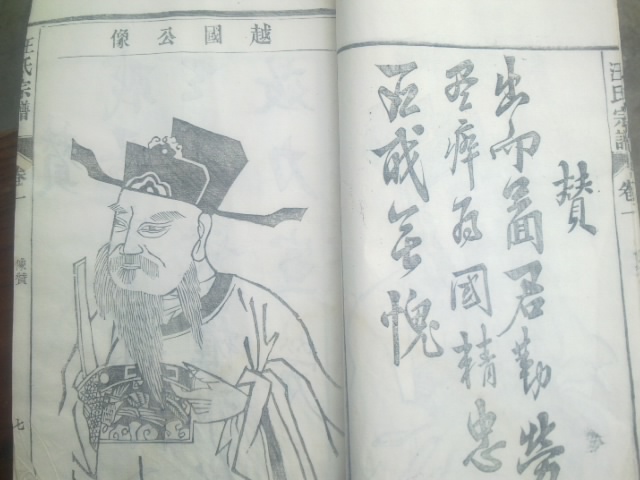 汪氏宗譜 卷一
贊
出而啚君勤勞
尽瘁為國精忠
無愧
越國公像
汪氏宗譜 卷一
七